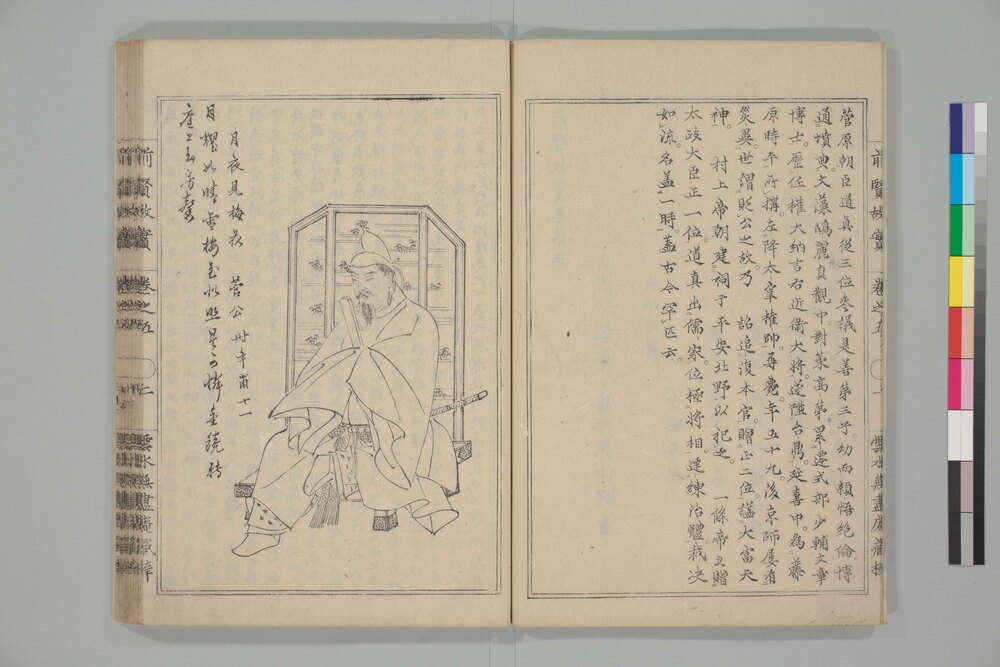 菅原朝臣道真。從三位參議是善第三子。幼而穎悟絶倫。博
通墳典。文藻鴻麗。貞觀中。對策高第。累遷式部少輔文章
博士。歷任權大納言右近衛大將。遂陞台鼎。延喜中。爲藤
原時平所搆。左降太宰權帥。尋薨。年五十九。後京師屡有
災異。世謂貶公之故。乃 詔追復本官。贈正二位。謚大富天
神。 村上帝朝。建祠于平安北野以祀之。 一條帝正贈
太政大臣正一位。道真出儒家。位極將相。達練治體。裁决
如流。名盖一時。盖古今罕匹云。
前賢故實 卷之五
月夜見梅花 菅公 卅年甫十一
月耀如晴雪梅花似照星可憐金鏡轉
庭上玉房馨
前賢故實 卷之五 二 雲水無盡庵藏梓